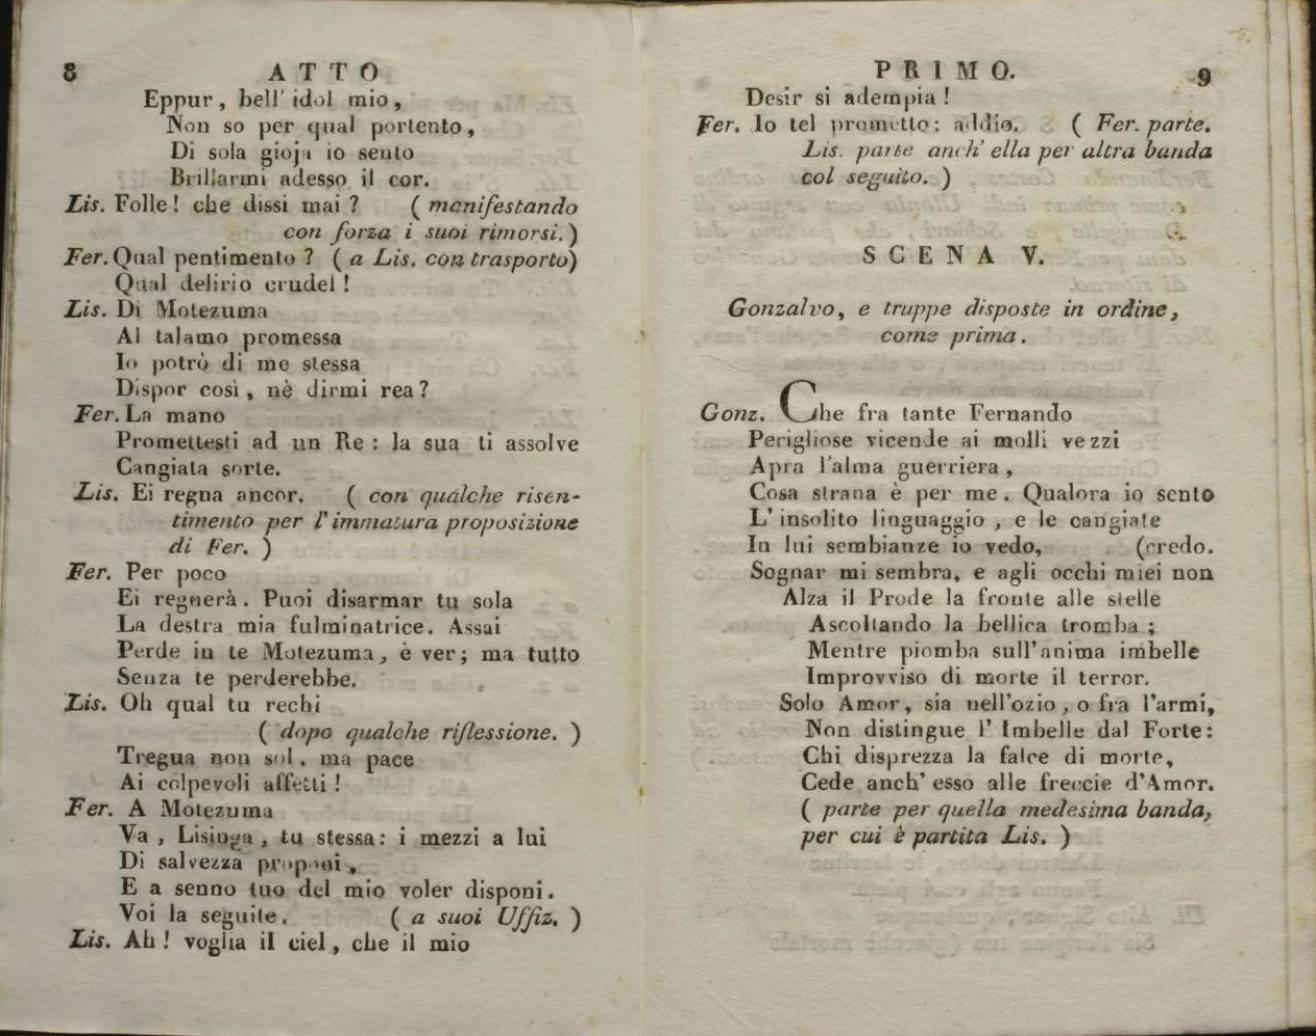 8 ATTO
Eppur, bell' idol mio,
Non so per qual portento,
Di sola gioja io sento
Brillarmi adesso il cor.
Lis. Folle! che dissi mai? (manifestando
con forza i suoi rimorsi.)
Fer. Qual pentimento? (a Lis. con trasporto)
Qual delirio crudel!
Lis. Di Motezuma
Al talamo promessa
Io potrò di me stessa
Dispor così, nè dirmi rea?
Fer. La mano
Promettesti ad un Re: la sua ti assolve
Cangiata sorte.
Lis. Ei regna ancor. (con qualche risen-
timento per l'immatura proposizione
di Fer.)
Fer. Per poco
Ei regnerà. Puoi disarmar tu sola
La destra mia fulminatrice. Assai
Perde in te Motezuma, è ver; ma tutto
Senza te perderebbe.
Lis. Oh qual tu rechi
(dopo qualche riflessione.)
Tregua non sol, ma pace
Ai colpevoli affetti!
Fer. A Motezuma
Va, Lisinga, tu stessa: i mezzi a lui
Di salvezza proponi,
E a senno tuo del mio voler disponi.
Voi la seguite. (a suoi Uffiz.)
Lis. Ah! voglia il ciel, che il mio
PRIMO. 9
Desir si adempia!
Fer. Io tel prometto: addio. (Fer. parte.
Lis. parte anch' ella per altra banda
col seguito.)
SCENA V.
Gonzalvo, e truppe disposte in ordine,
come prima.
Gonz. Che fra tante Fernando
Perigliose vicende ai molli vezzi
Apra l'alma guerriera,
Cosa strana è per me. Qualora io sento
L'insolito linguaggio, e le cangiate
In lui sembianze io vedo, (credo.
Sognar mi sembra, e agli occhi miei non
Alza il Prode la fronte alle stelle
Ascoltando la bellica tromba;
Mentre piomba sull'anima imbelle
Improvviso di morte il terror.
Solo Amor, sia nell'ozio, o fra l'armi,
Non distingue l' Imbelle dal Forte:
Chi disprezza la falce di morte,
Cede anch' esso alle freccie d'Amor.
(parte per quella medesima banda,
per cui è partita Lis.)